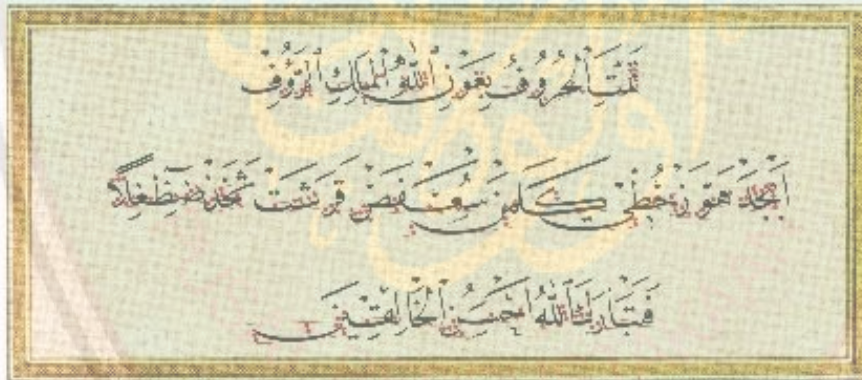 تَمَّتِ الْحُرُوفُ بِعَوْنِ اللّٰهِ الْمَلِكِ الرَّؤُفِ
اَبْجَدْ هَوَّزْ حُطِّي كَلَمَنْ سَعْفَصْ قَرَشَتْ ثَخَّذْ ضَظَّغْلًا
فَتَبَارَكَ اللّٰهُ اَحْسَنُ الْخَالِقِينَ